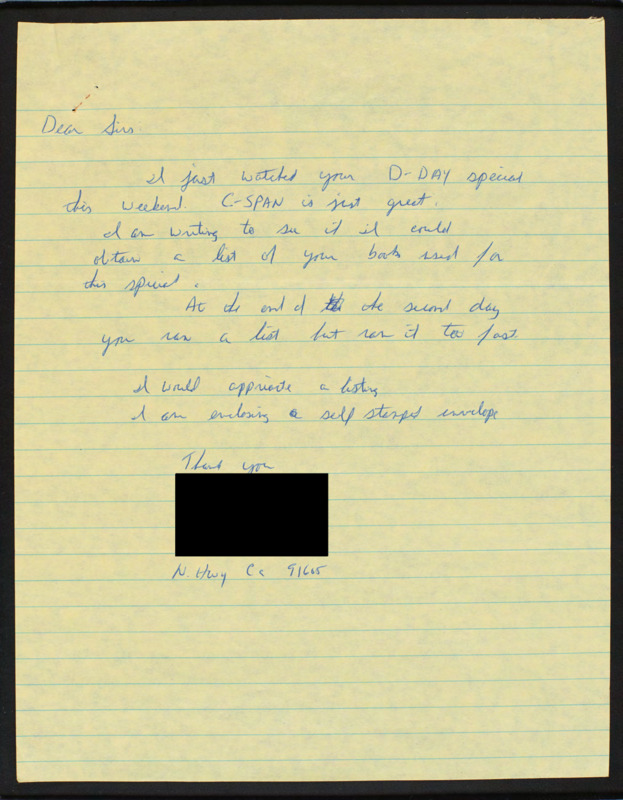 Dear Sirs.
I just watched your D-DAY special
this weekend. C-SPAN is just great.
I am writing to see if I could
obtain a list of your books used for
this special.
At the end of the second day
you ran a list but ran it too fast.
I would appriciate a listing
I am enclosing a self stamped envelope
Thank you
N. Hwy Ca 91605